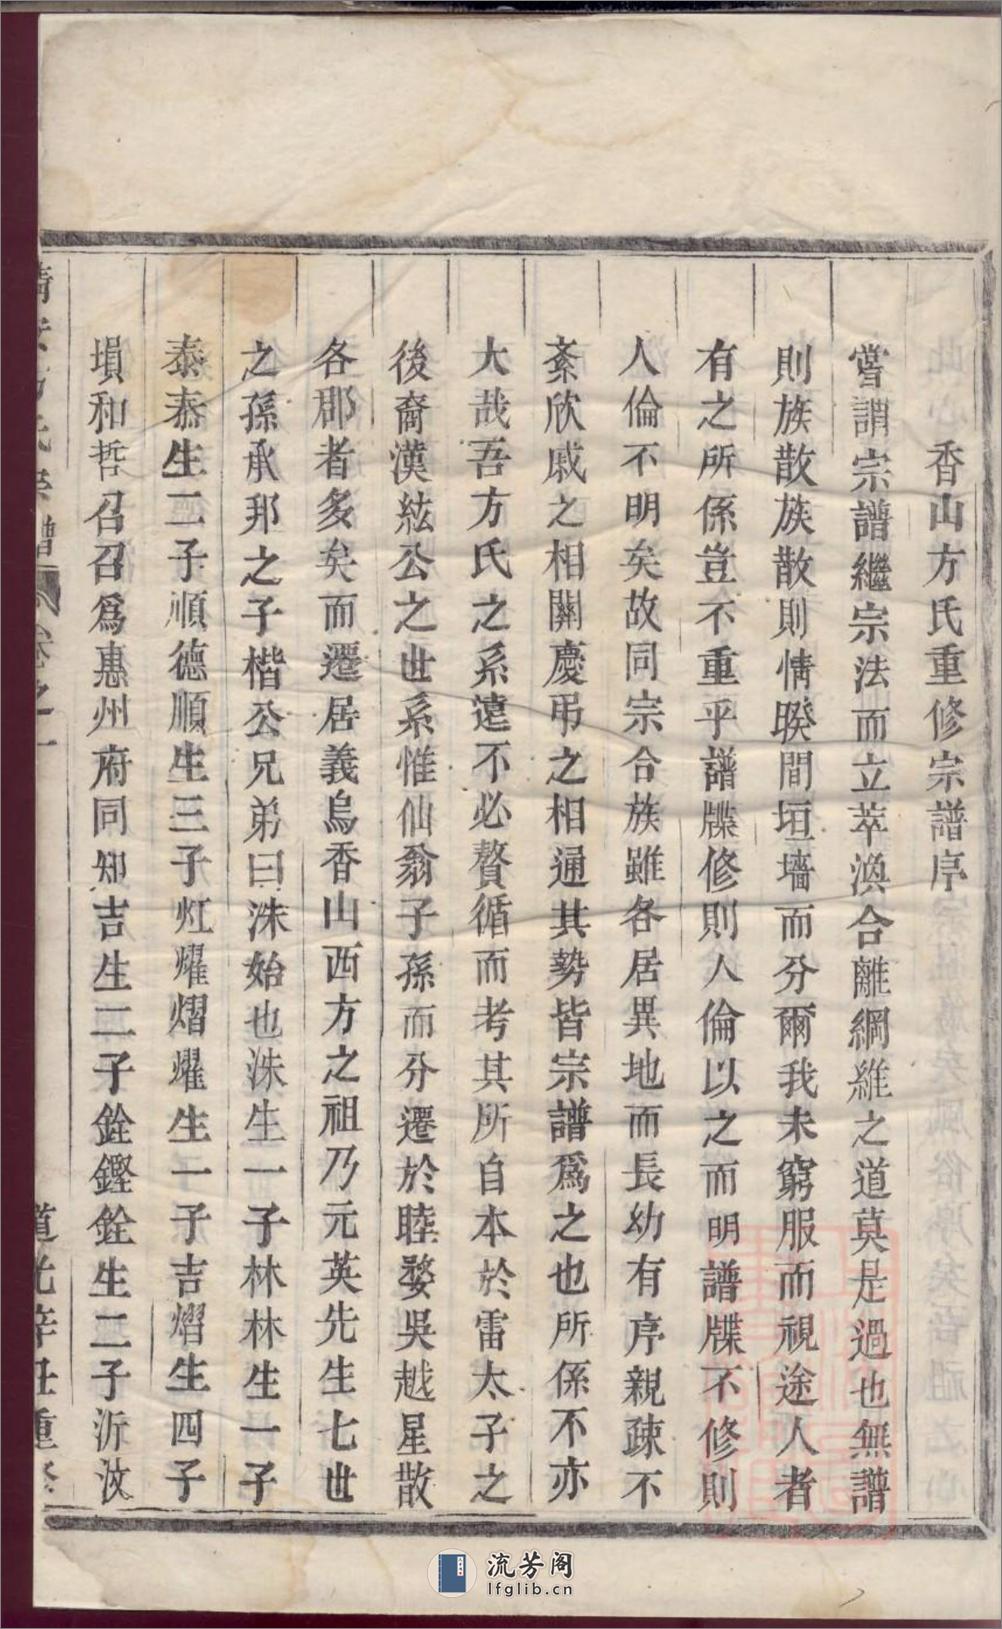 香山方氏重修宗譜序
嘗謂宗譜繼宗法而立萃渙合離綱維之道莫是過也無譜
則族散族散則情暌間垣墻而分爾我未窮服而視途人者
有之所係豈不重乎譜牒修則人倫以之而明譜牒不修則
人倫不明矣故同宗合族雖各居異地而長幼有序親疎不
紊欣戚之相關慶弔之相通其勢皆宗譜爲之也所係不亦
大哉吾方氏之系遠不必贅循而考其所自本於雷太子之
後裔漢紘公之世系惟仙翁子孫而分遷於睦婺吳越星散
各郡者多矣而遷居義烏香山西方之祖乃元英先生七世
之孫承邦之子楷公兄弟曰洙始也洙生一子林林生一子
泰泰生二子順德順生三子灴燿熠燿生一子吉熠生四子
塤和哲召召爲惠州府同知吉生二子銓鏗銓生二子沂汶
方氏宗譜 卷之一 道光辛丑重修
流芳阁
lfglib.cn